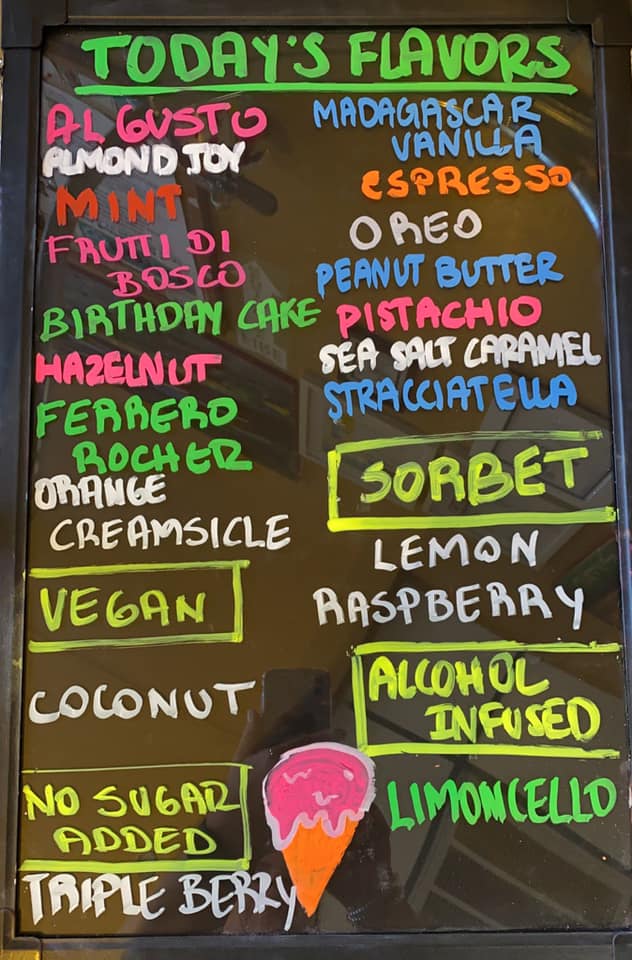 TODAY'S FLAVORS
AL GUSTO
ALMOND JOY
MINT
FRUTTI DI
BOSCO
BIRTHDAY CAKE
HAZELNUT
FERRERO
ROCHER
ORANGE
CREAMSICLE
VEGAN
COCONUT
NO SUGAR
ADDED
TRIPLE BERRY
MADAGASCAR
VANILLA
ESPRESSO
OREO
PEANUT BUTTER
PISTACHIO
SEA SALT CARAMEL
STRACCIATELLA
SORBET
LEMON
RASPBERRY
ALCOHOL
INFUSED
LIMONCELLO